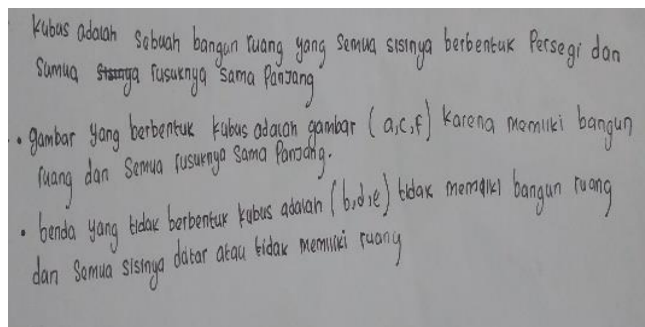 kubus adalah sebuah bangun ruang yang semua sisinya berbentuk persegi dan
sumua rusuknya sama panjang
• gambar yang berbentuk kubus adalah gambar (a,c,f) karena memiliki bangun
ruang dan semua rusuknya sama panjang.
• benda yang tidak berbentuk kubus adalah (b,d,e) tidak memiliki bangun ruang
dan semua sisinya datar atau tidak memiliki ruang